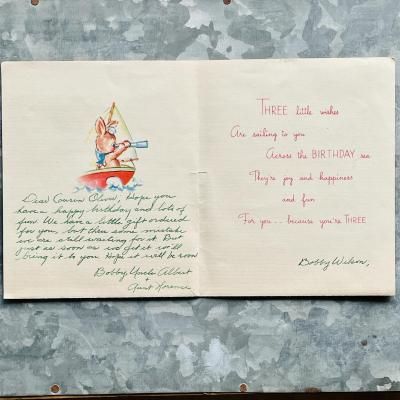 Dear Cousin Oliver, Hope you
have a happy birthday and lots of
fun. We have a little gift ordered
for you, but thru some mistake
we are still waiting for it. But
just as soon as we get it we'll
bring it to you. Hope it will be soon
Bobby, Uncle Albert
+
Aunt Florence
THREE little wishes
Are sailing to you
Across the BIRTHDAY sea
They're joy and happiness
and fun
For you... because you're THREE
Bobby Wilson,